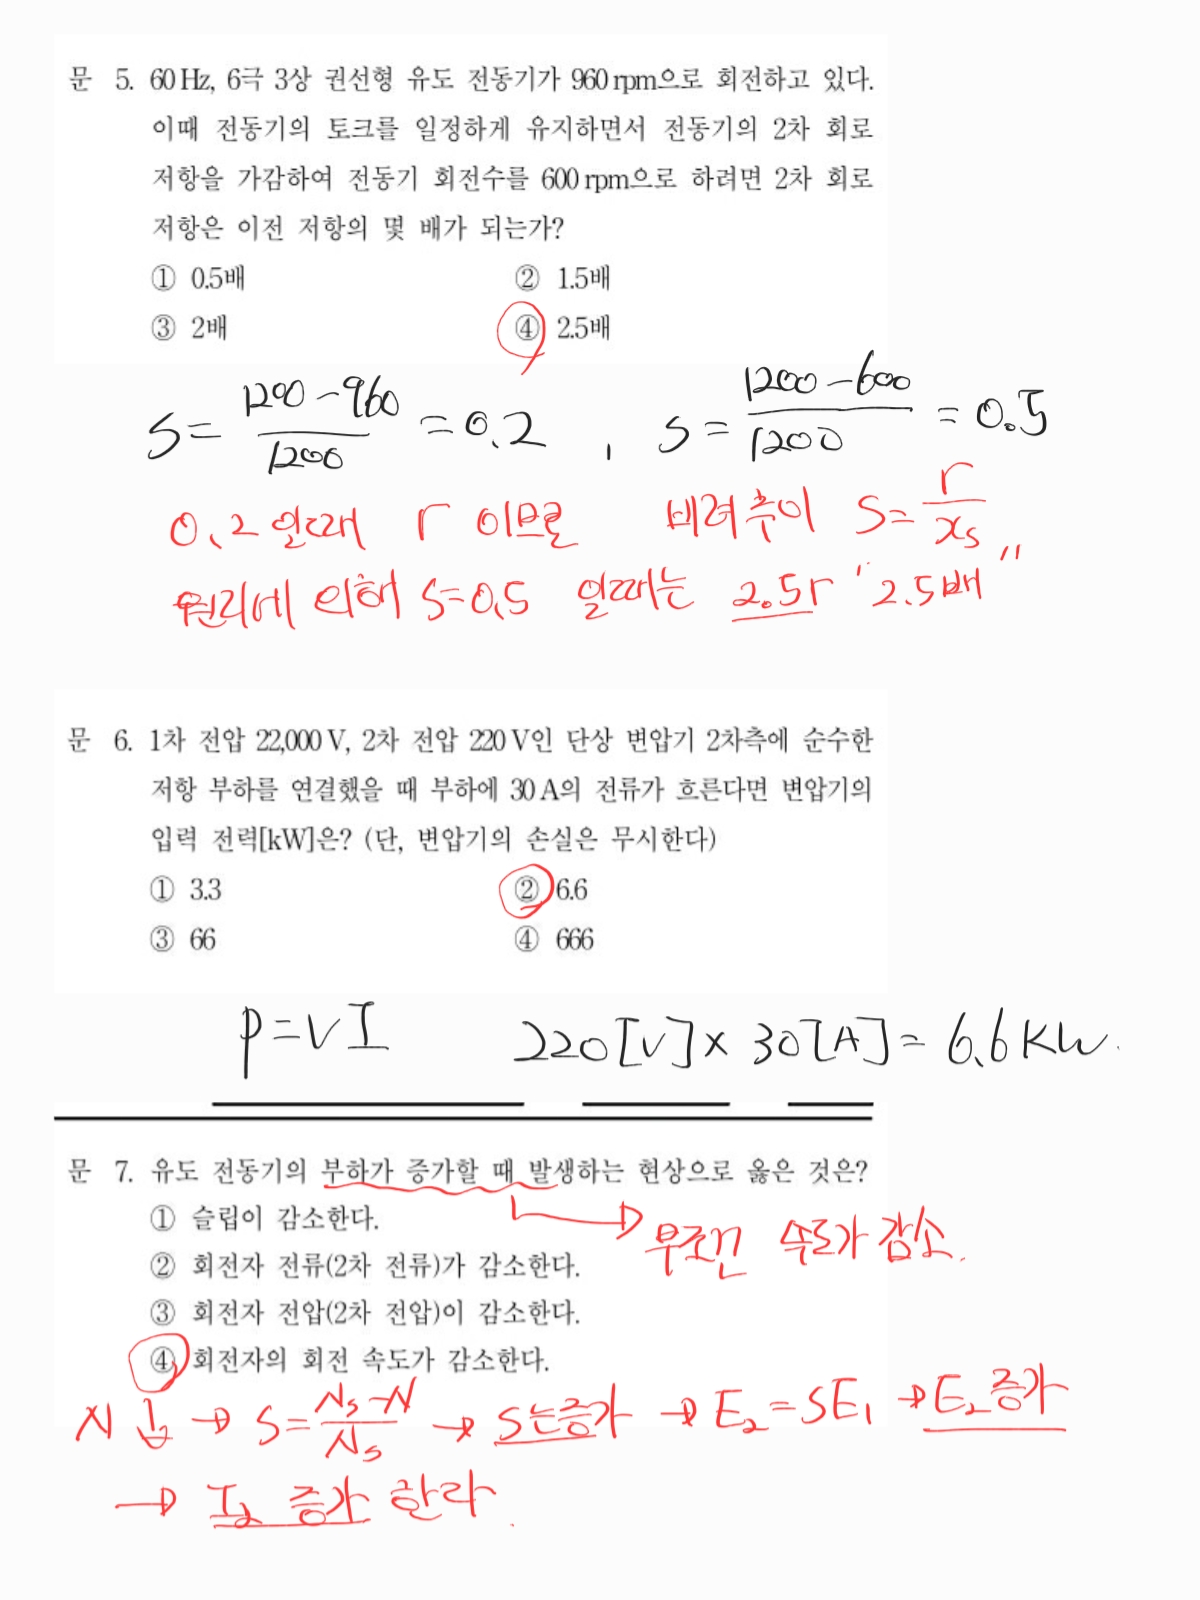 문 5. 60 Hz, 6극 3상 권선형 유도 전동기가 960 rpm으로 회전하고 있다.
이때 전동기의 토크를 일정하게 유지하면서 전동기의 2차 회로
저항을 가감하여 전동기 회전수를 600 rpm으로 하려면 2차 회로
저항은 이전 저항의 몇 배가 되는가?
① 0.5배 ② 1.5배
③ 2배 ④ 2.5배
S = (1200-960)/1200 = 0.2 , S = (1200-600)/1200 = 0.5
0.2 일때 r 이므로 비례추이 S = r/xs
원리에 의해 S=0.5 일때는 2.5r "2.5배"
문 6. 1차 전압 22,000 V, 2차 전압 220 V인 단상 변압기 2차측에 순수한
저항 부하를 연결했을 때 부하에 30 A의 전류가 흐른다면 변압기의
입력 전력[kW]은? (단, 변압기의 손실은 무시한다)
① 3.3 ② 6.6
③ 66 ④ 666
P=VI 220[V]× 30[A] = 6.6 KW.
문 7. 유도 전동기의 부하가 증가할 때 발생하는 현상으로 옳은 것은?
① 슬립이 감소한다.
무조건 속도가 감소.
② 회전자 전류(2차 전류)가 감소한다.
③ 회전자 전압(2차 전압)이 감소한다.
④ 회전자의 회전 속도가 감소한다.
N ↓ → S = (Ns-N)/Ns → S는증가 → E₂ = SE₁ → E₂ 증가
→ I₂ 증가 한다.